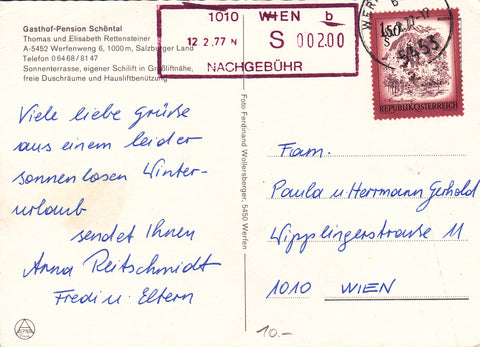 Gasthof-Pension Schöntal
Thomas und Elisabeth Rettensteiner
A-5452 Werfenweg 6, 1000 m, Salzburger Land
Telefon 0 64 68 / 81 47
Sonnenterrasse, eigener Schilift in Großliftnähe,
freie Duschräume und Hausliftbenützung
1010 WIEN b
12 2.77 N S 002.00
NACHGEBÜHR
5453
REPUBLIK ÖSTERREICH
Viele liebe Grüße
aus einem leider
sonnenlosen Winter-
urlaub
sendet Ihnen
Anna Reitschmidt
Fredi u. Eltern
Foto Ferdinand Wollenberger, 5450 Werfen
Fam.
Paula u Herrmann Gerhold
Wipplingerstrauße 11
1010 WIEN
10.-